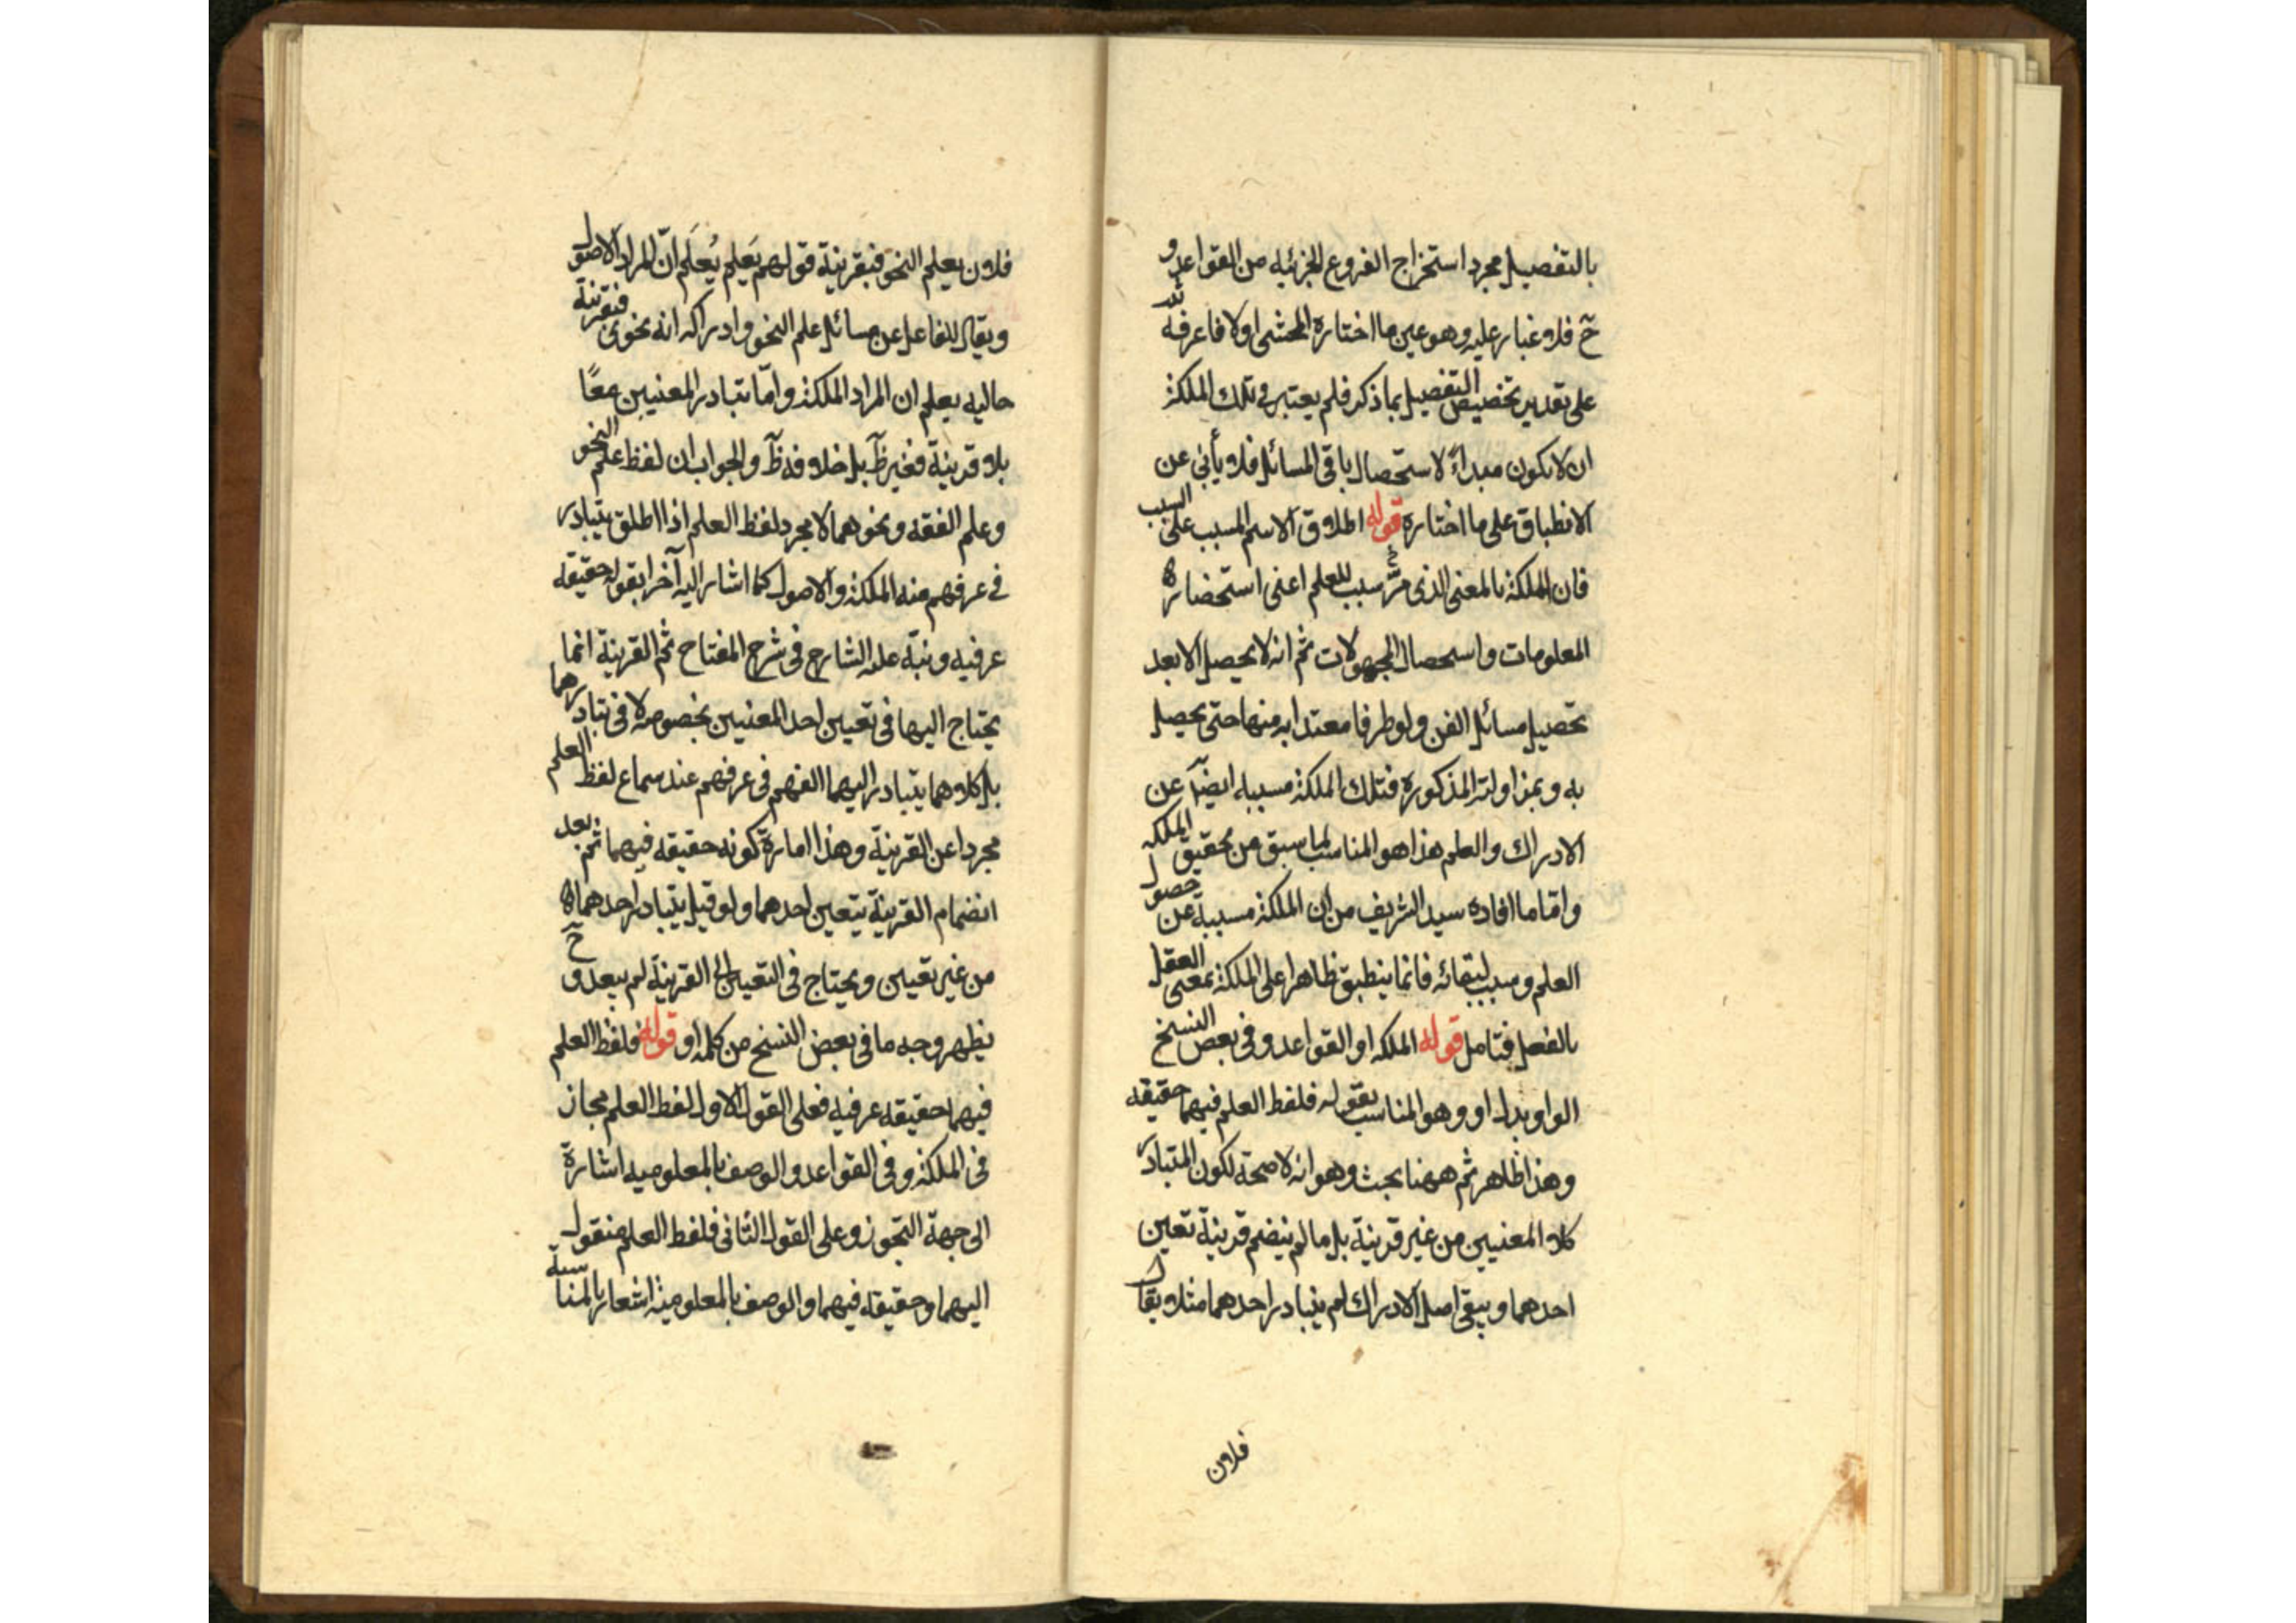 بالتفصيل مجرد استخراج الفروع الجزئيه من القواعد و
حٓ فلا غبار عليه وهو عين ما اختاره المحشى اولا فاعرفه
على تقدير تخصيص التفصيل بما ذكر فلم يعتبر فى تلك الملكة
ان لا يكون مبداءً لاستحصال باقى المسائل فلا يأبى عن
الانطباق على ما اختاره قوله اطلاق الاسم المسبب على السبب
فان الملكة بالمعنى الذى مرّ سبب للعلم اعنى استحضاره
المعلومات واستحصال المجهولات ثم انه لا يحصل الا بعد
تحصيل مسائل الفن ولو طرفا معتدا به منها حتى يحصل
به وبمزاولته المذكورة فتلك الملكة مسببه ايضآ عن
الادراك والعلم هذا هو المناسب لما سبق من تحقيق الملكه
واما ما افاده سيد الشريف من ان الملكة مسببة عن حصول
العلم وسبب لبقائه فانما ينطبق ظاهرا على الملكة بمعنى العقل
بالفعل فتامل قوله الملكه او القواعد وفى بعض النسخ
الواو بدل او وهو المناسب بقوله فلفظ العلم فيهما حقيقه
وهذا ظاهر ثم ههنا بحث وهو انه لا صحة لكون المتبادر
كلا المعنيين من غير قرينة بل ما لم ينضم قرينة تعين
احدهما ويبقى اصل الادراك لم يتبادر احدهما مثلا يقال
فلان
فلان يعلم النحو فبقرينة قولهم يَعلم يُعلَم انّ المراد الاصول
ويقال للفاعل عن مسائل علم النحو وادراكه انه نحوى فبقرينة
حاليه يعلم ان المراد الملكة وامّا تبادر المعنيين معًا
بلا قرينة فغير ظٓ بل خلافه ظٓ والجواب ان لفظ علم النحو
وعلم الفقه ونحوهما لا مجرد لفظ العلم اذا اطلق يتبادر
فى عرفهم منه الملكة والاصول كما اشار اليه آخرا بقوله حقيقة
عرفيه ونبّه عليه الشارح فى شرح المفتاح ثم القرينة انما
يحتاج اليها فى تعيين احد المعنيين بخصوصه لا فى تبادرهما
بل كلاهما يتبادر اليهما الفهم فى عرفهم عند سماع لفظ العلم
مجردا عن القرينة وهذا امارة كونه حقيقه فيهما ثم بعد
انضمام القرينة يتعين احدهما ولو قيل يتبادر احدهما لا
من غير تعيين ويحتاج فى التعيين الى القرينة لم يبعد و حٓ
يظهر وجه ما فى بعض النسخ من كلمه او قوله فلفظ العلم
فيهما حقيقه عرفيه فعلى القول الاول لفظ العلم مجاز
فى الملكة وفى القواعد والوصف بالمعلوميه اشارة
الى جهة التجوز وعلى القول الثانى فلفظ العلم منقول
اليهما وحقيقه فيهما والوصف بالمعلومية اشعار بالمناسبة